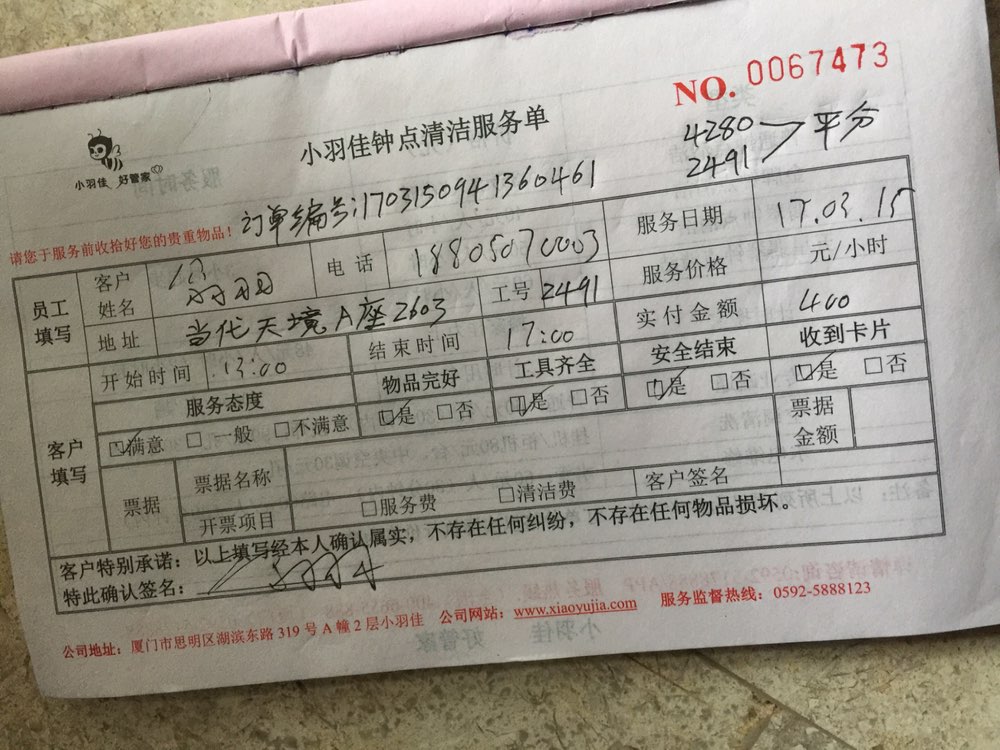 NO. 0067473
小羽佳钟点清洁服务单
4280 平分
2491
小羽佳 好管家
订单编号:1703150941360461
请您于服务前收拾好您的贵重物品！
员工填写
客户姓名
电话 18805070003
服务日期 17.03.15
地址 当代天境A座2603
工号 2491
服务价格 元/小时
开始时间 13:00
结束时间 17:00
实付金额 400
客户填写
服务态度
物品完好
工具齐全
安全结束
收到卡片
☑满意 □一般 □不满意
☑是 □否
☑是 □否
☑是 □否
☑是 □否
票据
票据名称
票据金额
开票项目 □服务费 □清洁费
客户签名
客户特别承诺：以上填写经本人确认属实，不存在任何纠纷，不存在任何物品损坏。
特此确认签名：
公司地址：厦门市思明区湖滨东路 319 号 A 幢 2 层小羽佳 公司网站：www.xiaoyujia.com 服务监督热线：0592-5888123